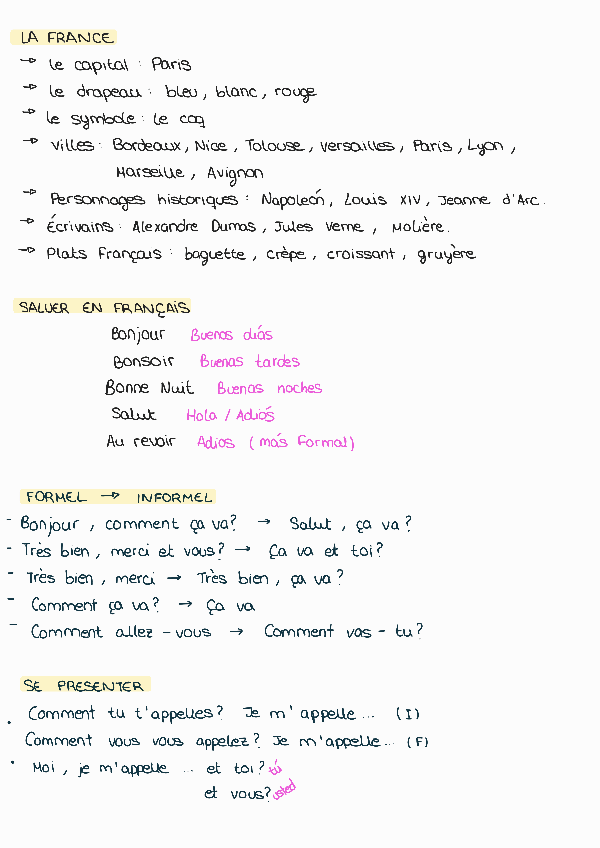 LA FRANCE
→ Le capital : Paris
→ Le drapeau : bleu, blanc, rouge
→ Le symbole : Le coq
→ Villes : Bordeaux, Nice, Tolouse, Versailles, Paris, Lyon,
Marseille, Avignon
→ Personnages historiques : Napoleón, Louis XIV, Jeanne d'Arc.
→ Écrivains : Alexandre Dumas, Jules Verne, Molière.
→ Plats Français : baguette, crèpe, croissant, gruyère
SALUER EN FRANÇAIS
Bonjour Buenos diás
Bonsoir Buenas tardes
Bonne Nuit Buenas noches
Salut Hola / Adiós
Au revoir Adios (más formal)
FORMEL → INFORMEL
- Bonjour, comment ça va? → Salut, ça va?
- Très bien, merci et vous? → Ça va et toi?
- Très bien, merci → Très bien, ça va?
- Comment ça va? → ça va
- Comment allez-vous → Comment vas-tu?
SE PRESENTER
• Comment tu t'appelles? Je m'appelle... (I)
Comment vous vous appelez? Je m'appelle... (F)
• Moi, je m'appelle ... et toi? tú
et vous? usted